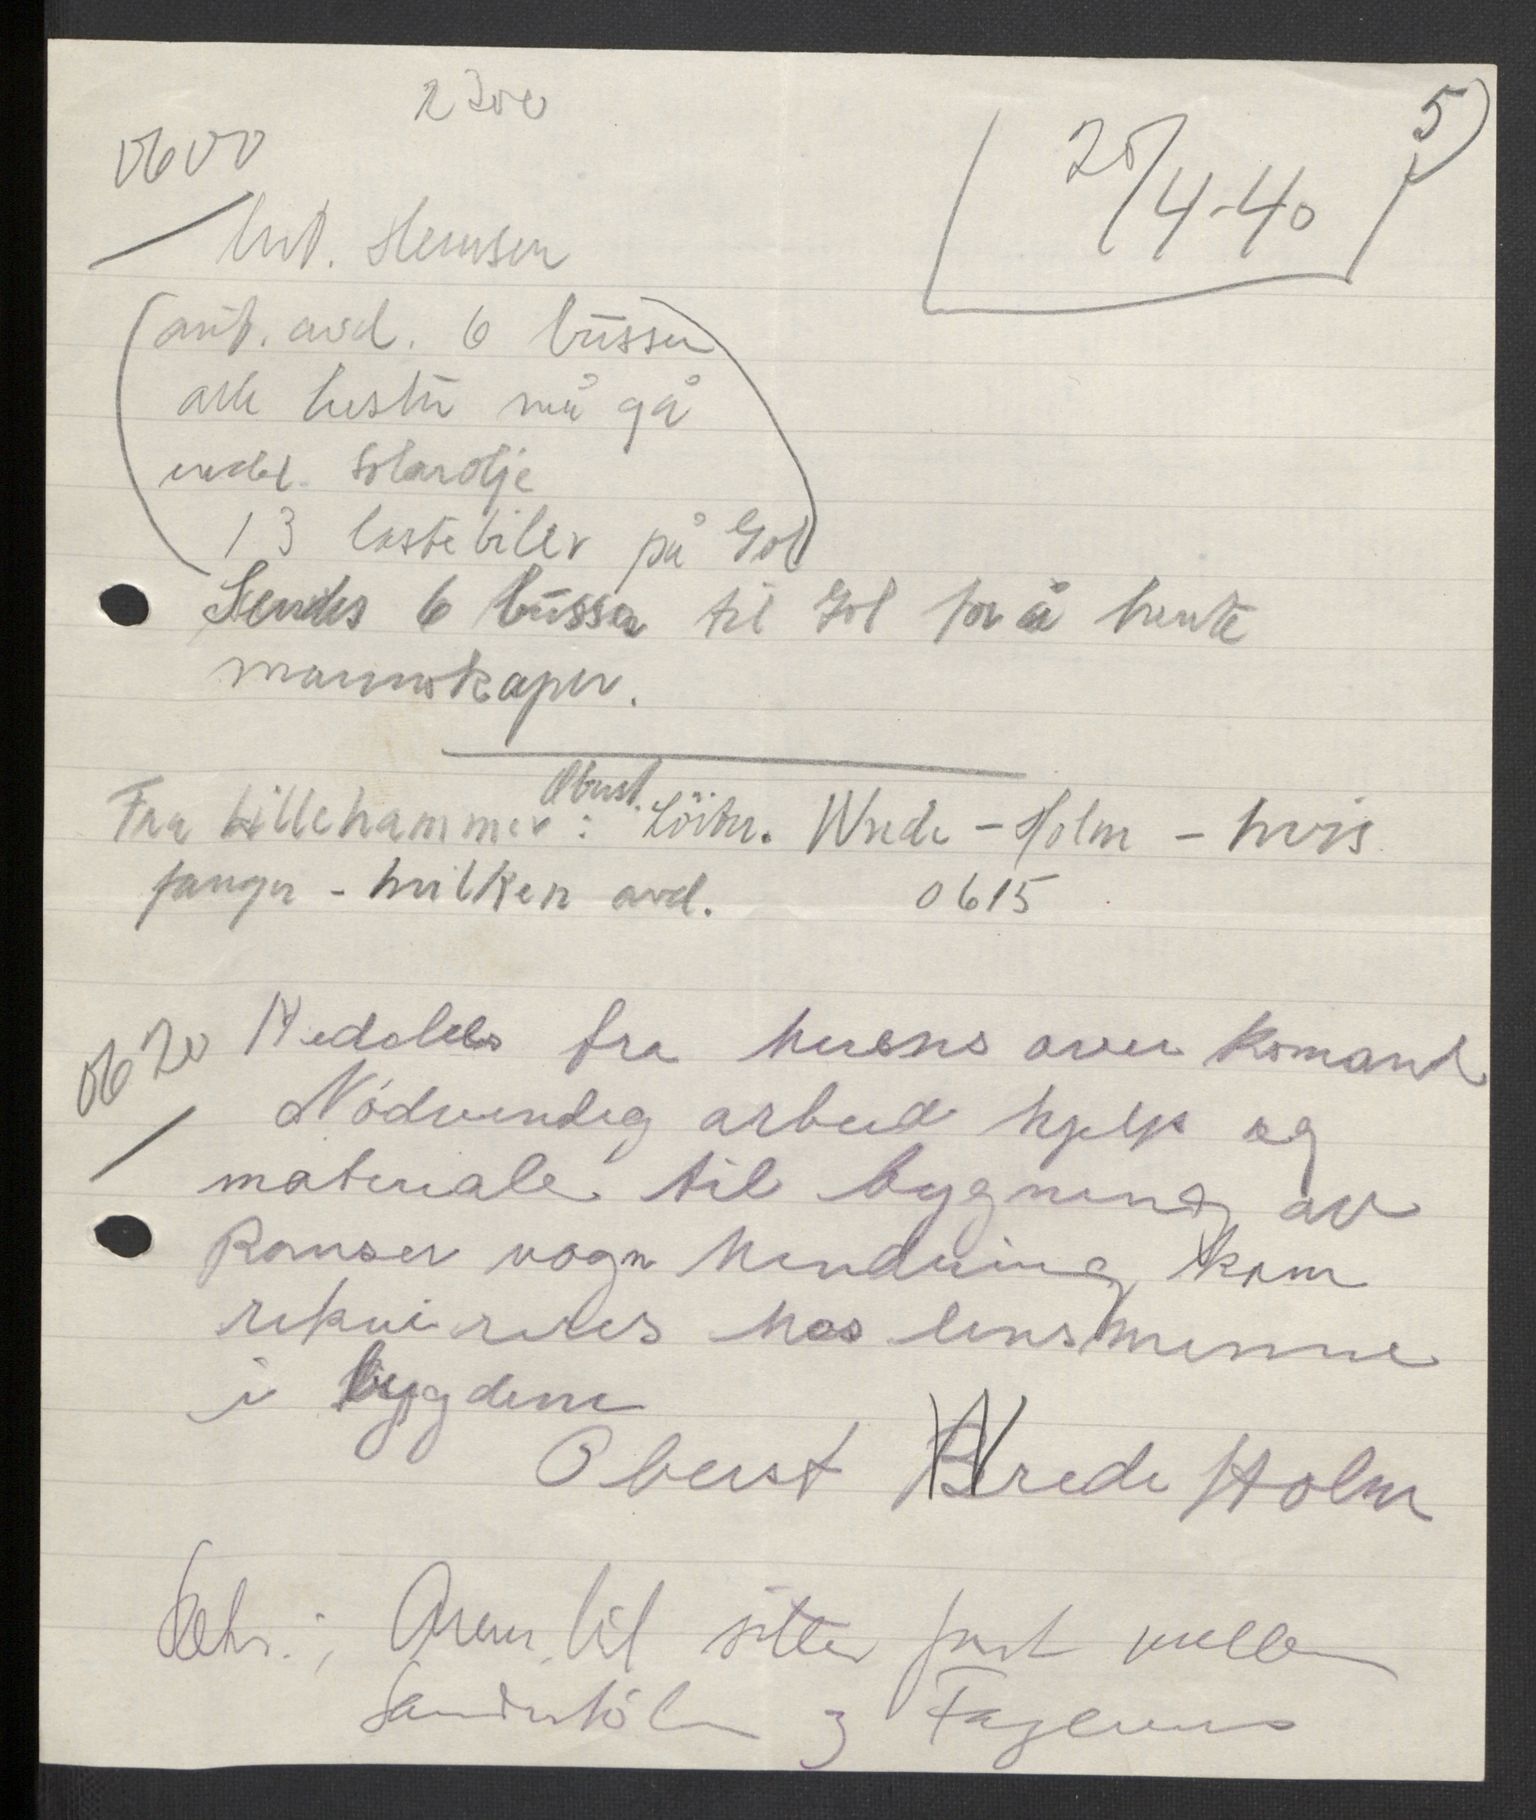 2300
5)
20/4-40
0600
Int. Hemsen
ant. avd. 6 busser
alle hester må gå
endel. Solarolje
13 lastebiler på Gol
Sendes 6 busser til Gol for å hente
mannskaper.
Oberst.
Fra Lillehammer: Löitn. Wrede-Holm - hvis
fanger - hvilken avd. 0615
0620 Meddeles fra herens over komand
Nödvendig arbeid hjelp og
materiale til bygning av
Panser vogn hendring kom
rekvireres hos lensmenne
i bygdene
Oberst Wrede Holm
bil sitter fast mellem
Sanderstölen og Fagernes